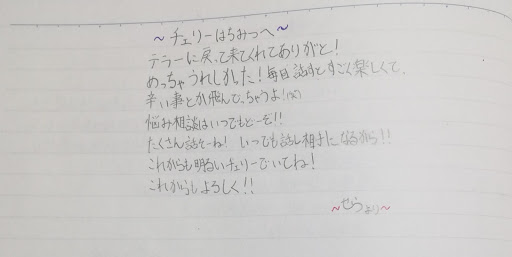 ~チェリーはちみつへ~
テラーに戻って来てくれてありがと!
めっちゃうれしかった!毎日話すとすごく楽しくて、
辛い事とか飛んでっちゃうよ!(笑)
悩み相談はいつでもどーぞ!!
たくさん話そーね! いつでも話し相手になるから!!
これからも明るいチェリーでいてね!
これからもよろしく!!
~せらより~